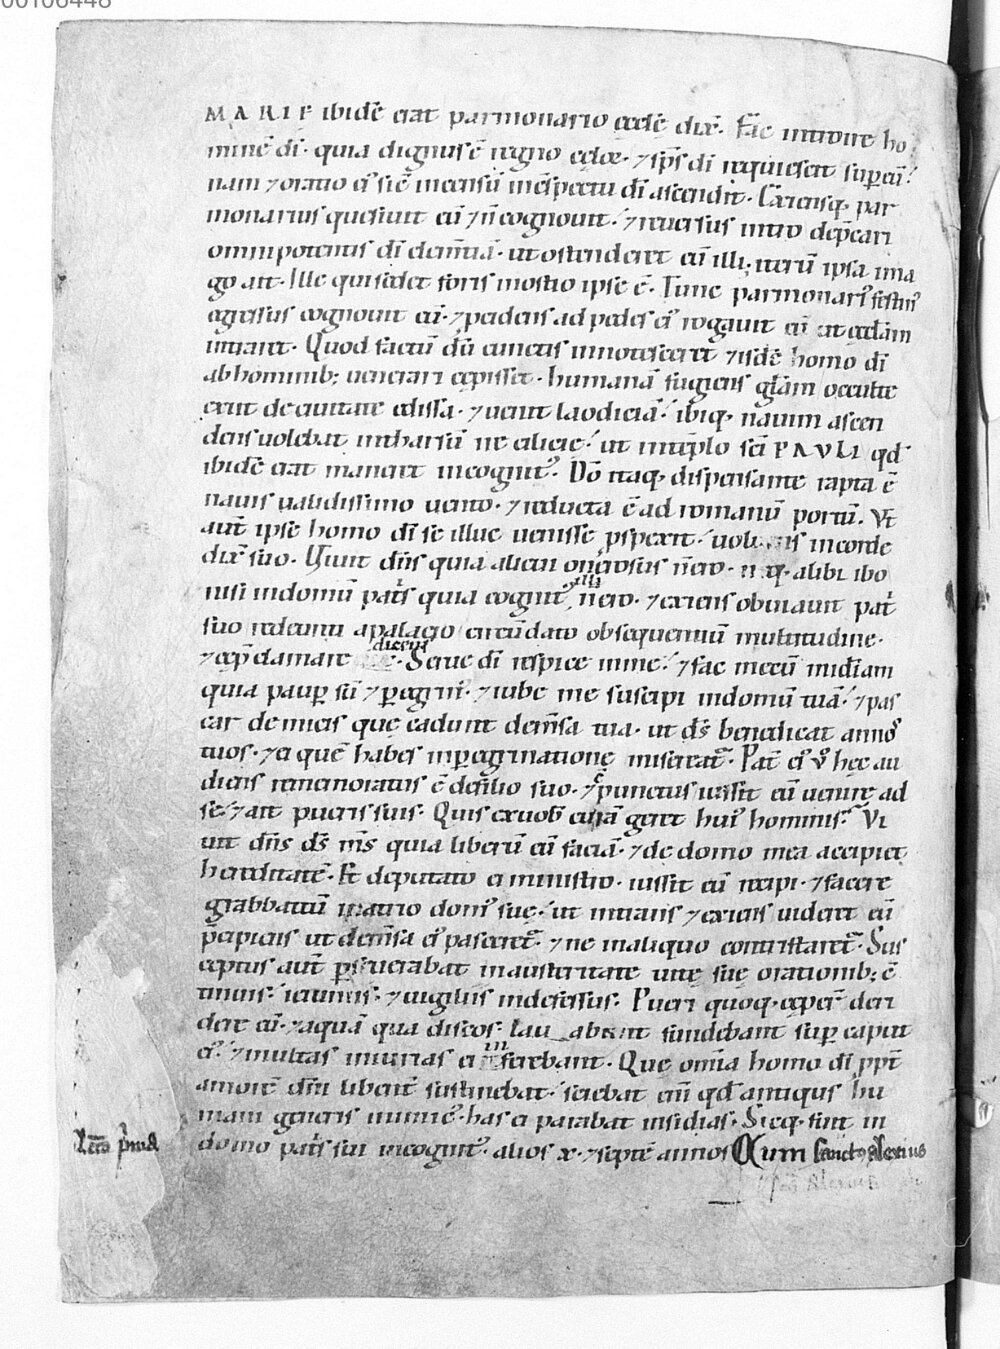 00106448
MARIE ibidē erat parmonario eccłē dix̄. Fac introire ho
minē di. quia dignus ē regno cęloꝝ. ⁊ sp̄s di requiescit sup eū.
nam ⁊ oratio ei' sic̄ incensū in c̄spectu dī ascendit. Exiensq; par
monarius quesiuit eū ⁊ n̄ cognouit. ⁊ reuersus intro dep̄cari
omnipotentis dī clem̄tiā. ut ostenderet eū illi. iterū ipsa ima
go ait. Ille qui sedet foris in ostio ipse ē. Tunc parmonari' festin'
egressus cognouit eū. ⁊ pcidens ad pedes ei' rogauit eū ut ęcclam
intraret. Quod factū dū cunctis innotesceret ⁊ isdē homo dī
ab hominib; uenerari cępisset. humanā fugiens głam occulte
exiit de ciuitate edissa. ⁊ uenit laodiciā. ibiq; nauim ascen
dens uolebat in tharsū ne cilicię. ut in tēplo sc̄i PAVLI qd
ibidē erat maneret incognit'. Dō itaq; dispensante rapta ē
nauis ualidissimo uento. ⁊ reducta ē ad romanū portū. Vt
aut̄ ipse homo dī se illuc uenisse pspexit. in corde
dix̄ suo. Viuit dn̄s quia alicui on̄osus n̄ ero. alibi ibo
nisi in domū patis quia cognit' illi n̄ ero. ⁊ exiens obuiauit pat̄
suo redeunti a palacio circūdato obsequentiū multitudine.
⁊ cęp̄ clamare dicens. Serue dī respice in me. ⁊ fac mecū mīdiam
quia paup sū ⁊ pegrin'. ⁊ iube me suscipi in domū tuā. ⁊ pas
car de micis quę cadunt de m̄sa tua. ut ds̄ benedicat annos
tuos. ⁊ ei quē habes in pegrinatione misereat̄. Pat̄ ei' ů hęc au
diens rememoratus ē de filio suo. ⁊ cpunctus iussit eū uenire ad
se. ⁊ ait pueris suis. Quis ex uob̄ curā geret hui' hominis. Vi
uit dn̄s ds̄ m̄s quia liberū eū faciā. ⁊ de domo mea accipiet
hereditatē. Et deputato ei ministro. iussit eū recipi. ⁊ facere
grabbattū in atrio dom' suę. ut intrans ⁊ exiens uideret eū
p̄cipiens ut de m̄sa ei' pasceret̄. ⁊ ne in aliquo contristaret̄. Sus
ceptus aut̄ pseuerabat in austeritate uitę suę orationib; c̄
tinuis. ieiuniis. ⁊ uigiliis indefessus. Pueri quoq; cęper̄ deri
dere eū. ⁊ aquā qua discos lauabant fundebant sup caput
ei'. ⁊ multas iniurias ei inferebant. Que om̄ia homo dī ppt̄
amorē dn̄i libent̄ sustinebat. sciebat eni qd antiqus hu
mani generis inimic' has ei parabat insidias. Sicq; fuit in
domo patis sui incognit'. alios x. ⁊ septē annos Cum sanctus alexius
Lectō p̄ma